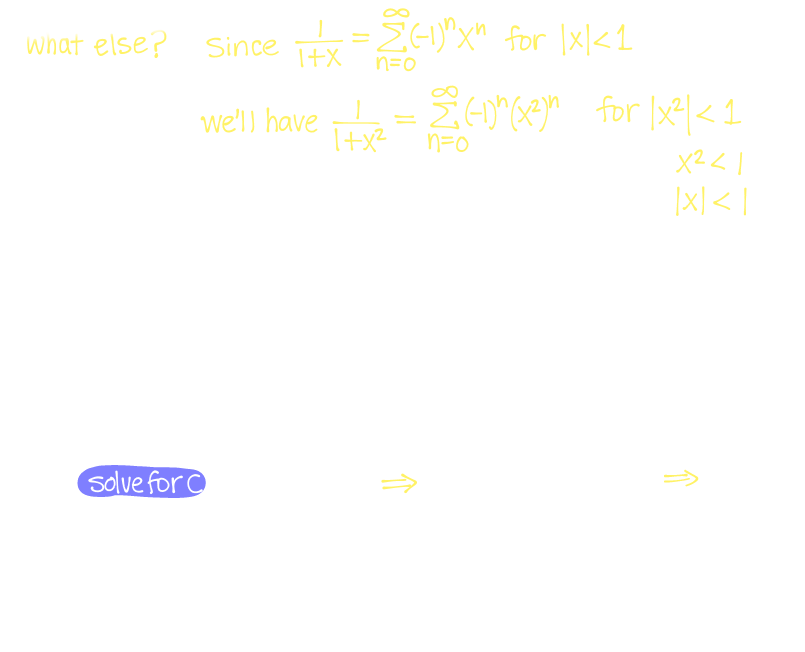 what else? Since 1/(1+x) = ∞∑n=0 (-1)ⁿxⁿ for |x|<1
we'll have 1/(1+x²) = ∞∑n=0 (-1)ⁿ(x²)ⁿ for |x²|<1
x²<1
|x|<1
solve for C ⇒ ⇒